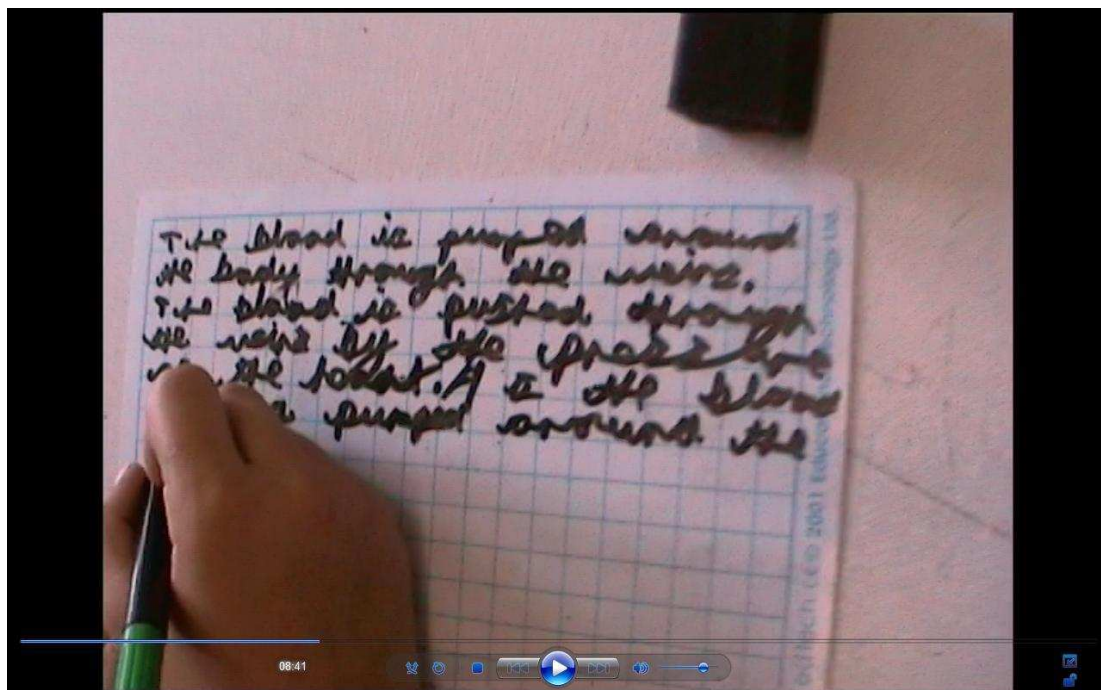 The blood is pumped around
the body through the veins.
The blood is pushed through
the veins by the pressure
the heart. A the blood
pumped around the
© 2001 Educ
08:41